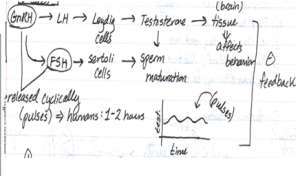 (brain)
GnRH → LH → Leydig cells → Testosterone → tissue
↓ affects behavior
FSH → Sertoli cells → Sperm maturation
⊖ feedback
released cyclically
(pulses) ⇒ humans: 1-2 hours
(pulses)
time